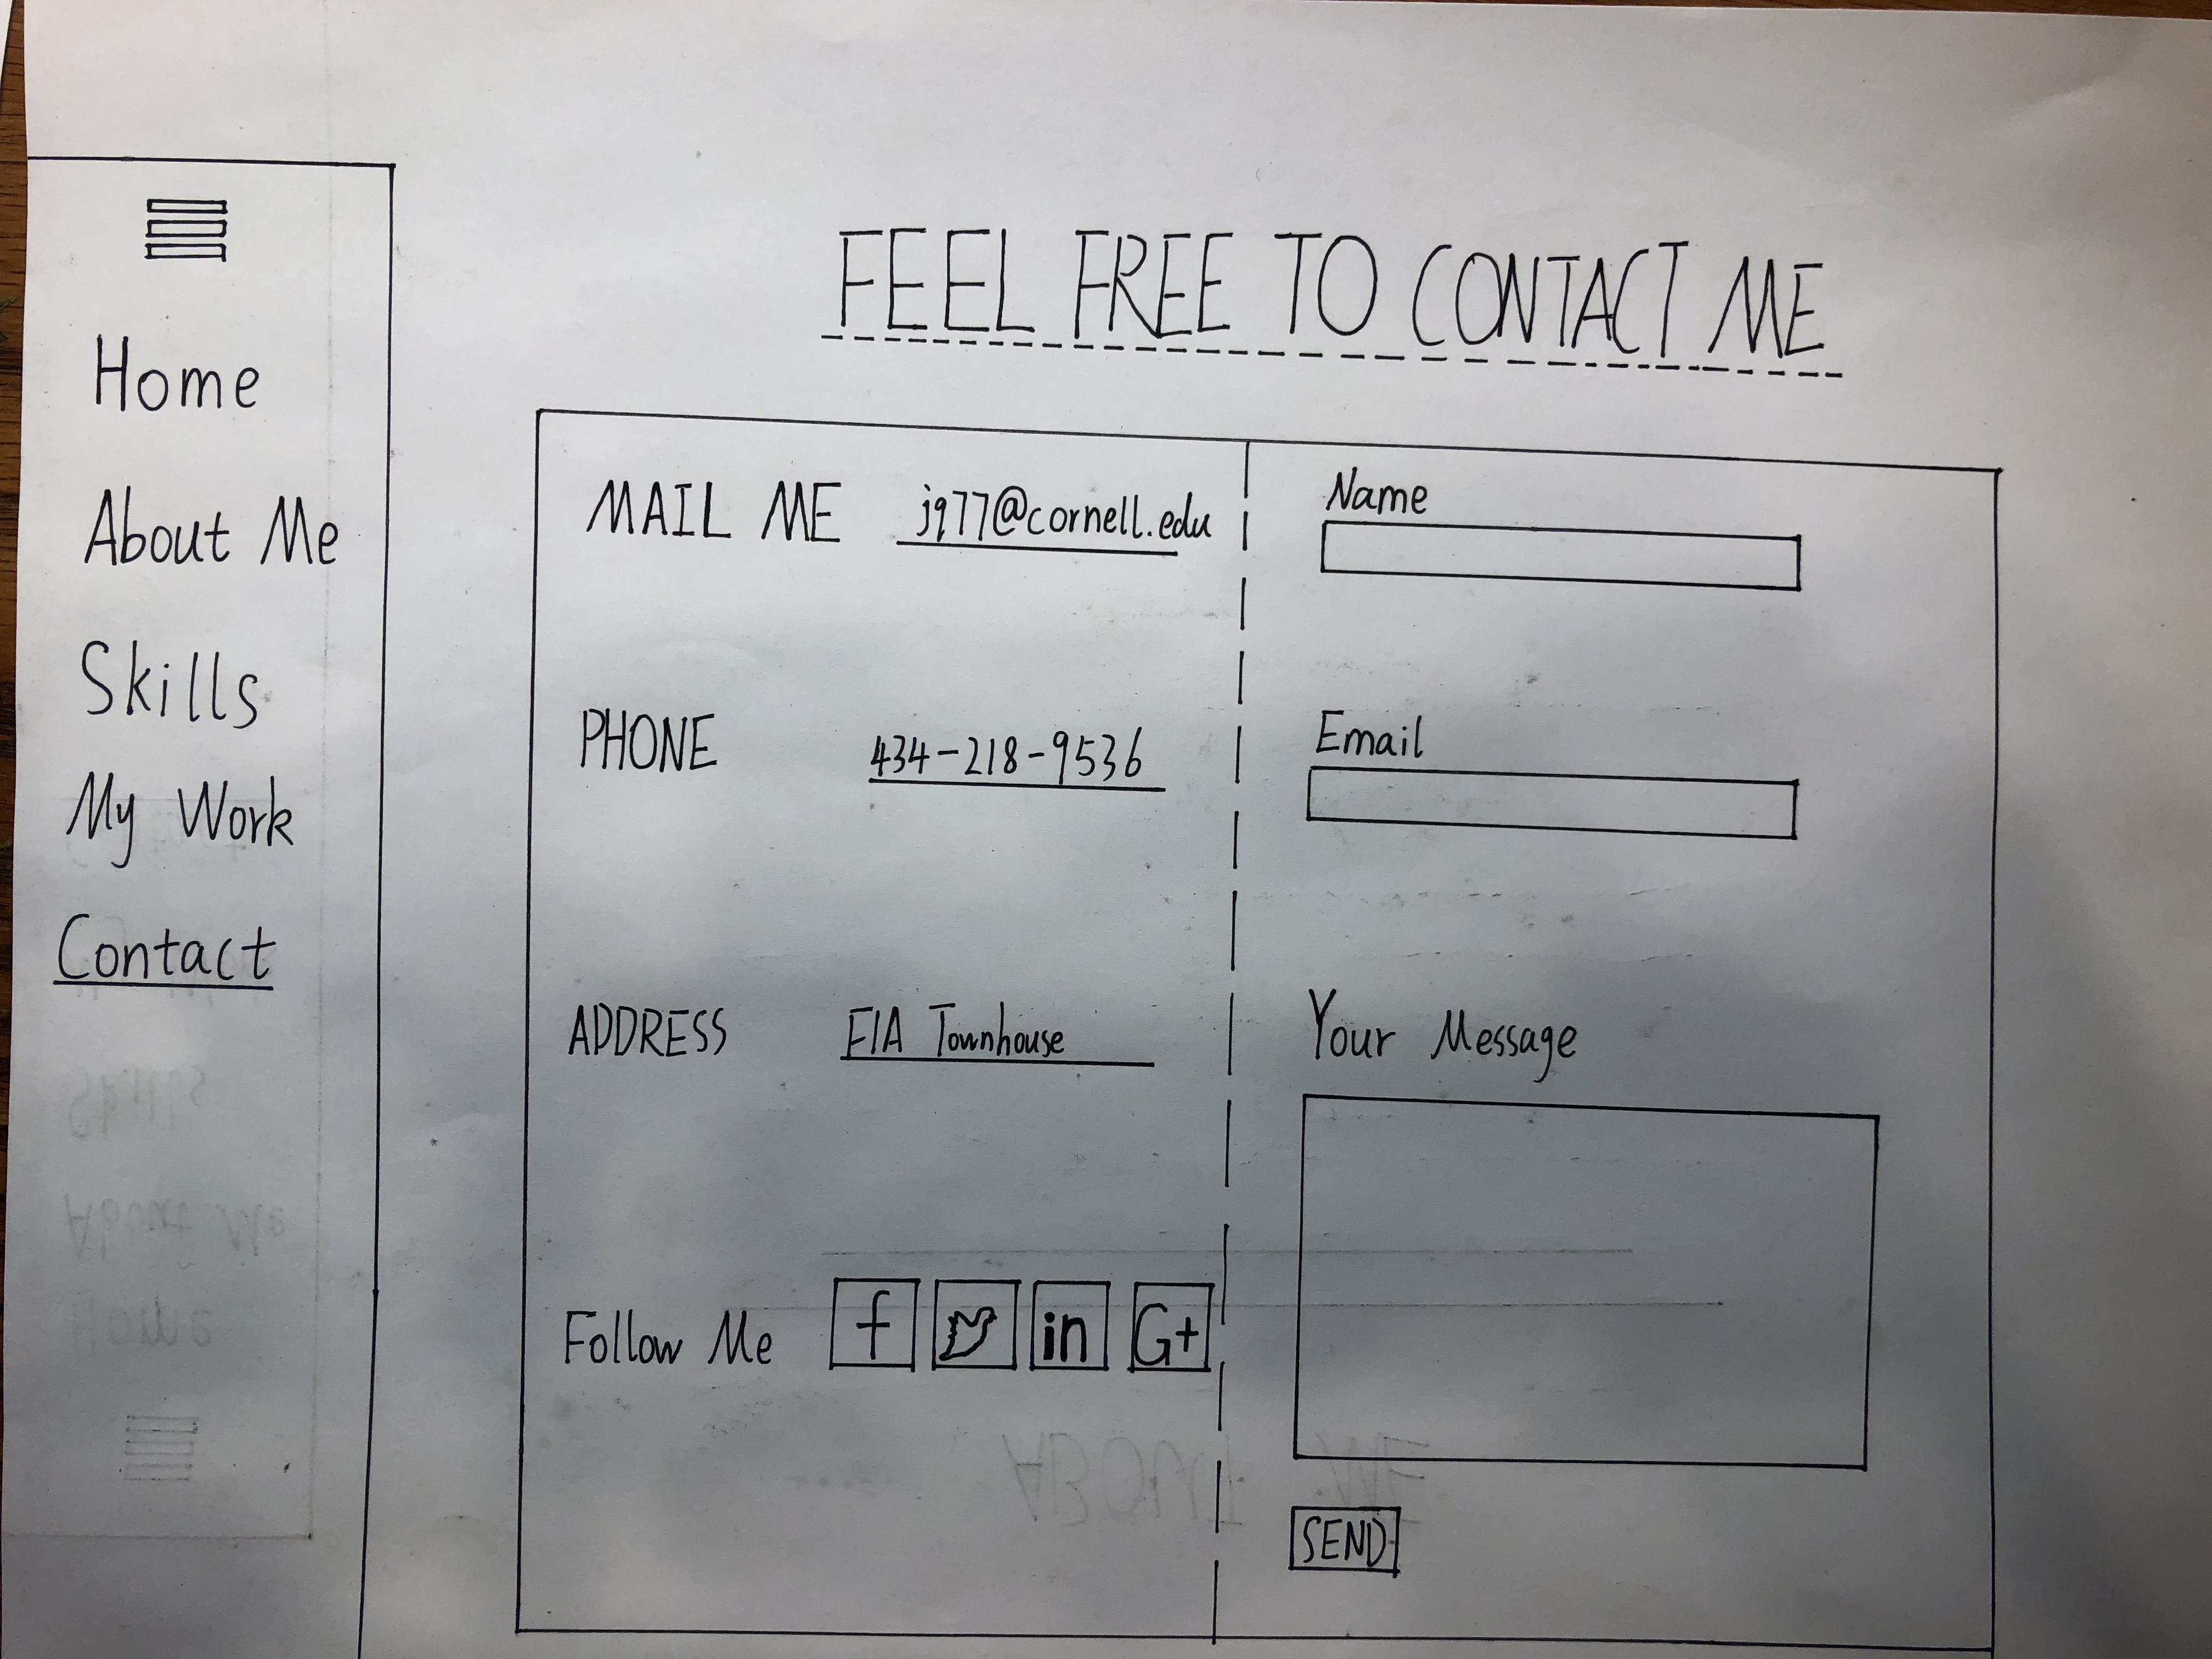 Home
About Me
Skills
My Work
Contact
FEEL FREE TO CONTACT ME
MAIL ME j977@cornell.edu
PHONE 434-218-9536
ADDRESS F1A Townhouse
Follow Me f in G+
Name
Email
Your Message
SEND